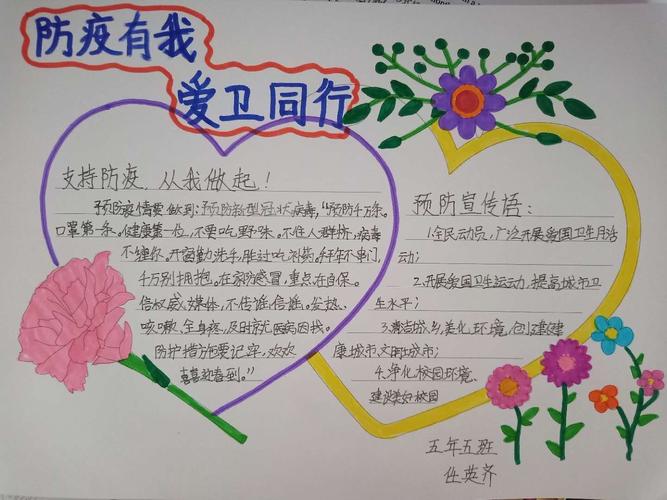 防疫有我
爱卫同行
支持防疫，从我做起！
预防疫情要做到：预防新型冠状病毒，“预防千万条。
口罩第一条。健康第一位，不要吃野味。不往人群挤，病毒
不缠你。开窗勤洗手，胜过吃补药。拜年不串门，
千万别拥抱。在家防感冒，重点在自保。
信权威媒体，不传谣信谣。发热、
咳嗽、全身疼，及时就医病因找。
防护措施要记牢，欢欢
喜喜迎春到。”
预防宣传语：
1.全民动员，广泛开展爱国卫生月活
动；
2.开展爱国卫生运动，提高城市卫
生水平；
3.清洁城乡，美化环境，创建健
康城市、文明城市；
4.净化校园环境，
建设美好校园
五年五班
任英齐